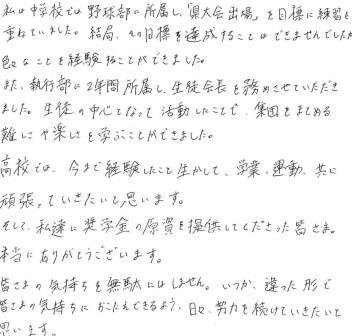 私は中学校では野球部に所属し、「県大会出場」を目標に練習を
重ねていました。結局、その目標を達成することはできませんでしたが
色々なことを経験することができました。
また、執行部に2年間所属し、生徒会長を務めさせていただき
ました。生徒の中心となって活動したことで、集団をまとめる
難しさや楽しさを学ぶことができました。
高校では、今まで経験したこと生かして、学業、運動、共に
頑張っていきたいと思います。
そして、私達に奨学金の原資を提供してくださった皆さま。
本当にありがとうございます。
皆さまの気持ちを無駄にはしません。いつか、違った形で
皆さまの気持ちにおこたえできるよう、日々、努力を続けていきたいと
思います。